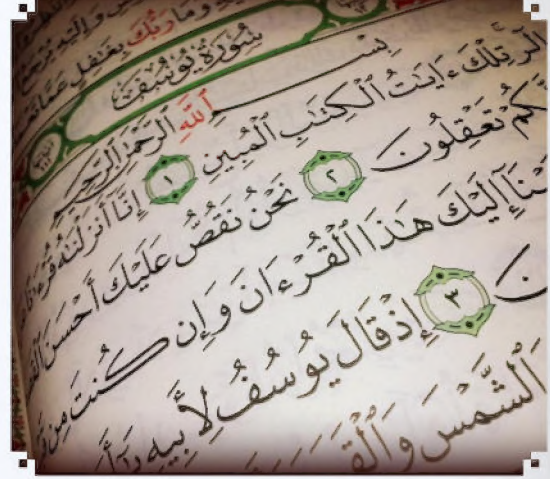 وَمَا رَبُّكَ بِغَٰفِلٍ عَمَّا
سُورَةُ يُوسُفَ
بِسْمِ ٱللَّهِ ٱلرَّحْمَٰنِ ٱلرَّحِيمِ
الٓر تِلْكَ ءَايَٰتُ ٱلْكِتَٰبِ ٱلْمُبِينِ ١ إِنَّآ أَنزَلْنَٰهُ
تَعْقِلُونَ ٢ نَحْنُ نَقُصُّ عَلَيْكَ أَحْسَنَ
إِلَيْكَ هَٰذَا ٱلْقُرْءَانَ وَإِن كُنتَ مِن
٣ إِذْ قَالَ يُوسُفُ لِأَبِيهِ
ٱلشَّمْسَ